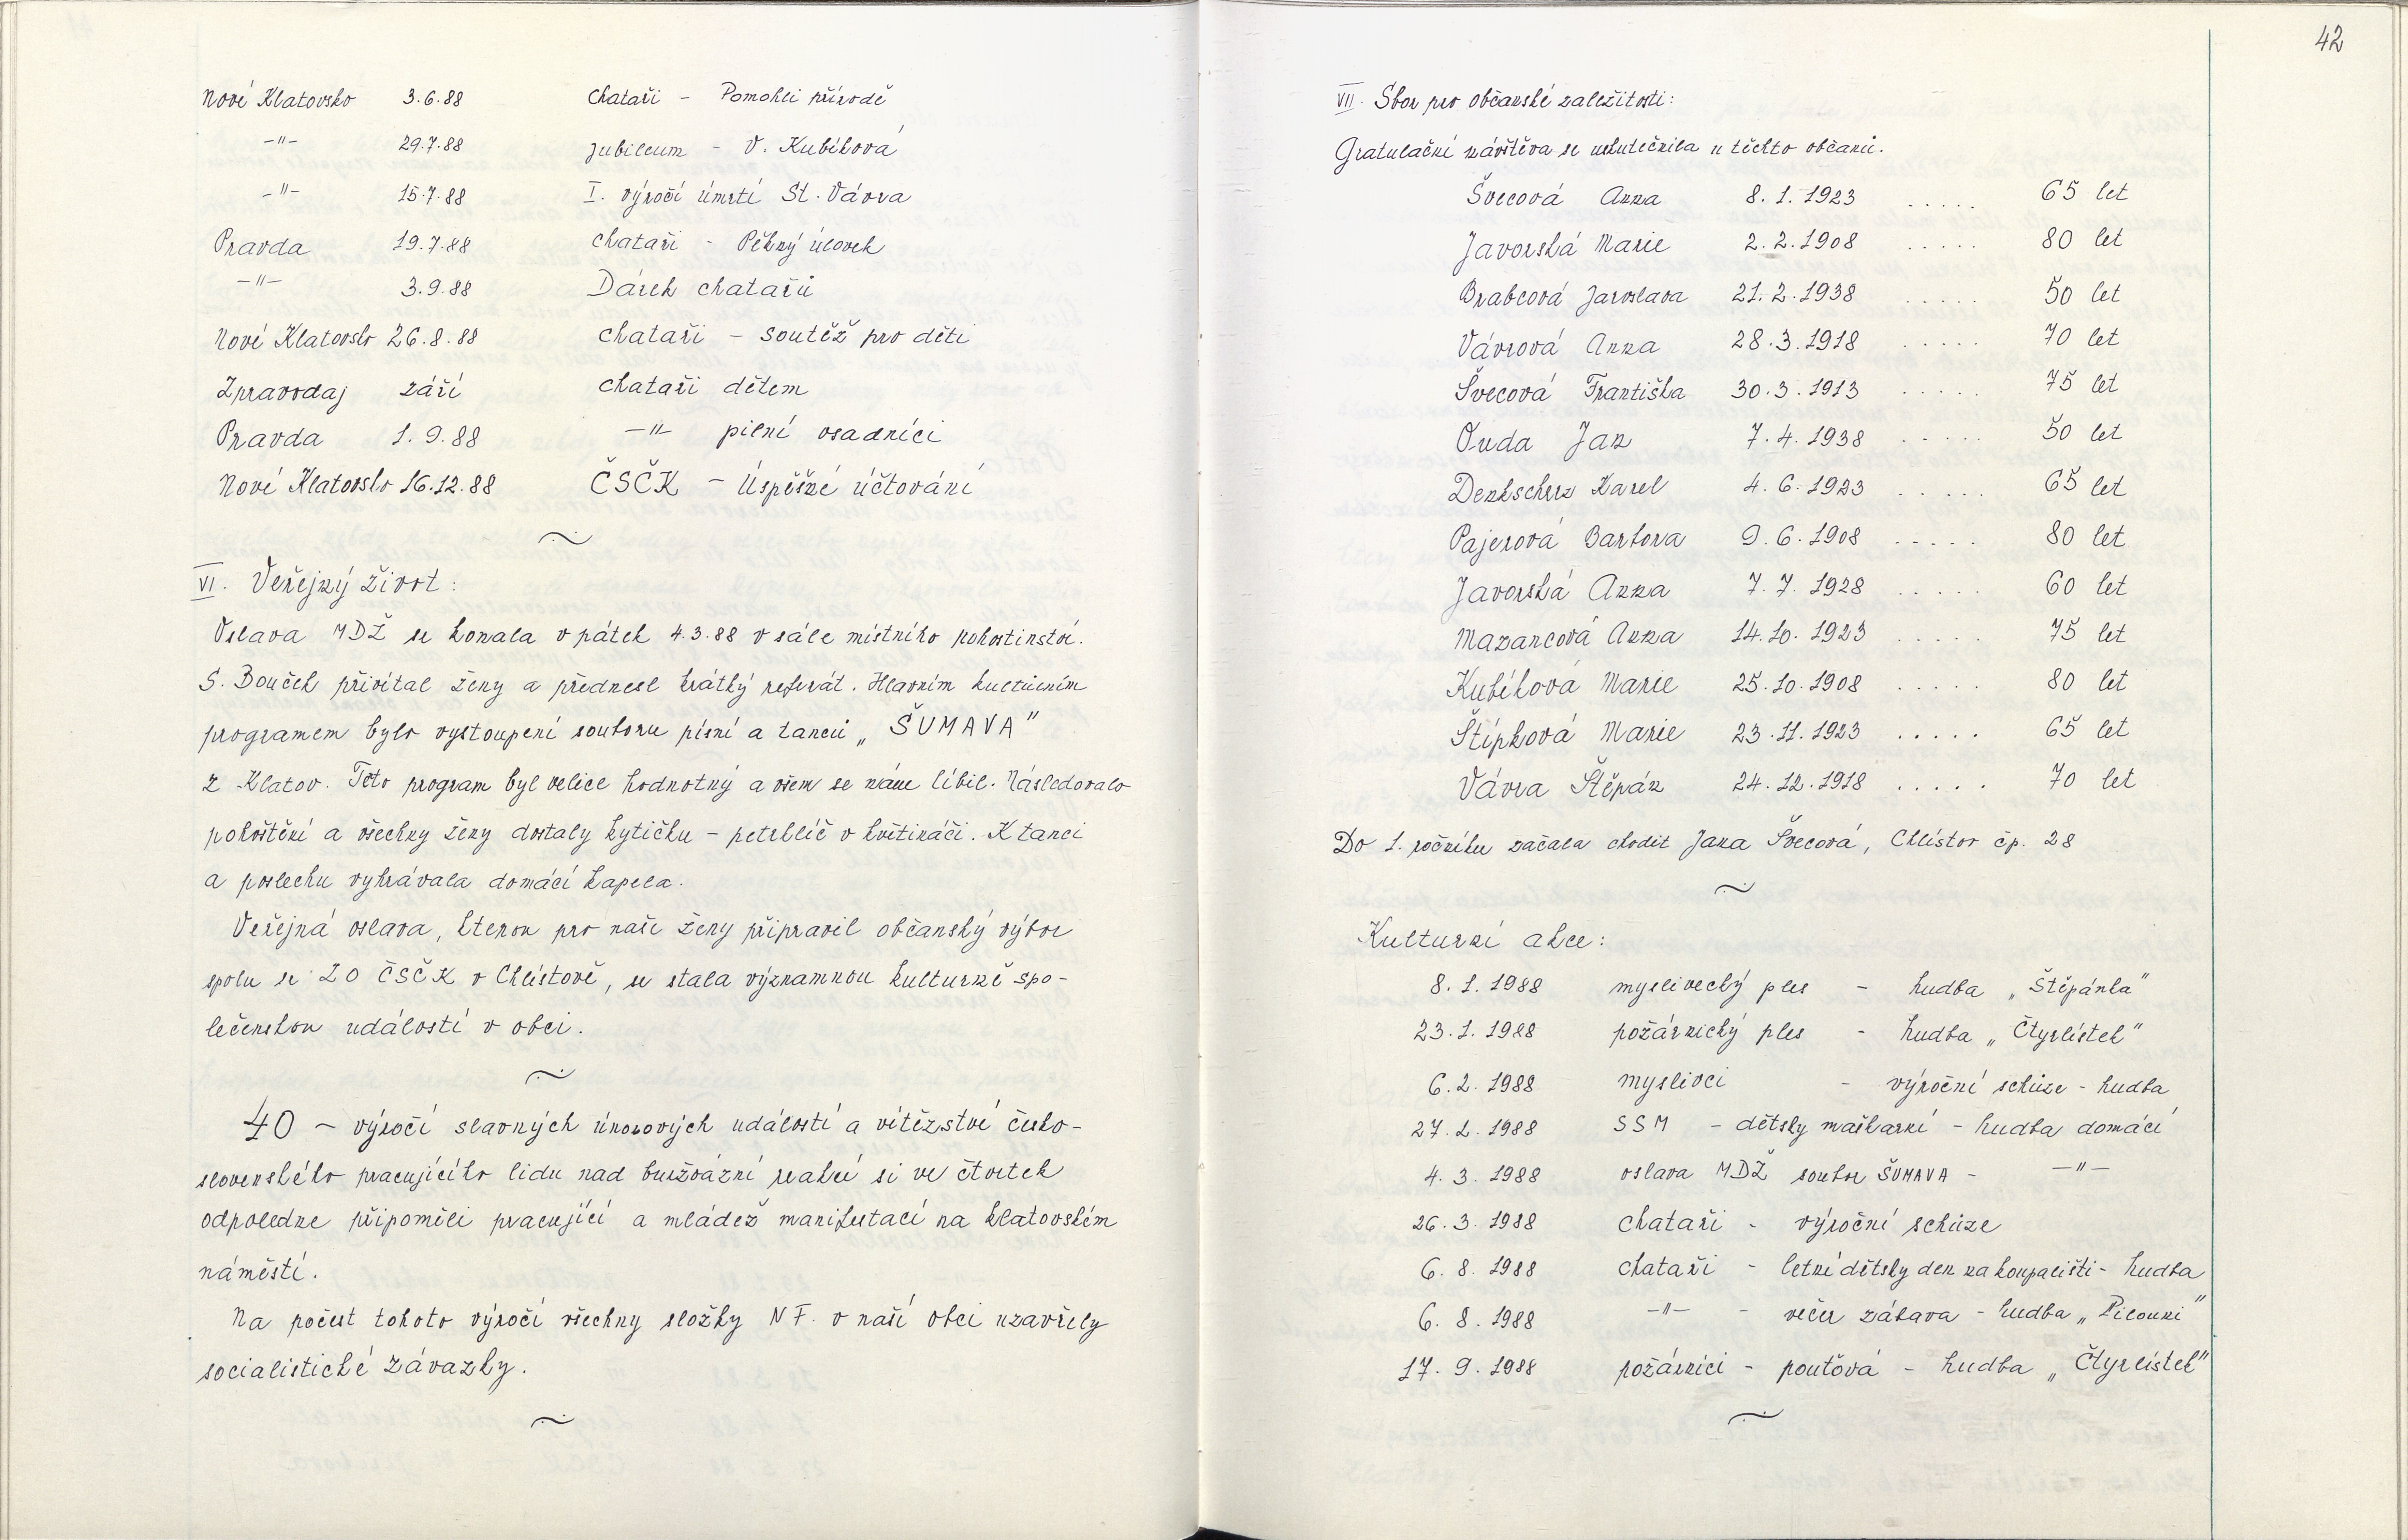 Nové Klatovsko 3.6.88 chataři - Pomohli přírodě
-"- 29.7.88 jubileum - V. Kubíková
-"- 15.7.88 I. výročí úmrtí St. Vávra
Pravda 19.7.88 chataři - Pěkný úlovek
-"- 3.9.88 Dárek chatařů
Nové Klatovsko 26.8.88 chataři - soutěž pro děti
Zpravodaj září chataři dětem
Pravda 1.9.88 -"- pilní osadníci
Nové Klatovsko 16.12.88 ČSČK - Úspěšné účtování
VI. Veřejný život:
Oslava MDŽ se konala v pátek 4.3.88 v sále místního pohostinství.
S. Bouček přivítal ženy a přednesl krátký referát. Hlavním kulturním
programem bylo vystoupení souboru písní a tanců „ŠUMAVA"
z Klatov. Teto program byl velice hodnotný a všem se nám líbil. Následovalo
pohoštění a všechny ženy dostaly kytičku - petrklíč v květináči. K tanci
a poslechu vyhrávala domácí kapela.
Veřejná oslava, kterou pro naše ženy připravil občanský výbor
spolu se ZO ČSČK v Chlístově, se stala významnou kulturně spo-
lečenskou událostí v obci.
40 - výročí slavných únorových událostí a vítězství česko-
slovenského pracujícího lidu nad buržoázní reakcí si ve čtvrtek
odpoledne připoměli pracující a mládež manifestací na klatovském
náměstí.
Na počest tohoto výročí všechny složky NF. v naší obci uzavřely
socialistické závazky.
42
VII. Sbor pro občanské zaležitosti:
Gratulační návštěva se uskutečnila u těchto občanů.
Švecová Anna 8. 1. 1923 ..... 65 let
Javorská Marie 2. 2. 1908 ..... 80 let
Brabcová Jaroslava 21. 2. 1938 ..... 50 let
Vávrová Anna 28. 3. 1918 ..... 70 let
Švecová Františka 30. 3. 1913 ..... 75 let
Duda Jan 7. 4. 1938 ..... 50 let
Denkscherz Karel 4. 6. 1923 ..... 65 let
Pajerová Barbora 9. 6. 1908 ..... 80 let
Javorská Anna 7. 7. 1928 ..... 60 let
Mazancová Anna 14. 10. 1923 ..... 75 let
Kubíková Marie 25. 10. 1908 ..... 80 let
Štípková Marie 23. 11. 1923 ..... 65 let
Vávra Štěpán 24. 12. 1918 ..... 70 let
Do 1. ročníku začala chodit Jana Švecová, Chlístov čp. 28
Kulturní akce:
8. 1. 1988 myslivecký ples - hudba „Štěpánka"
23. 1. 1988 požárnický ples - hudba „Čtyrlístek"
6. 2. 1988 myslivci - výroční schůze - hudba
27. 2. 1988 SSM - dětsky maškarní - hudba domácí
4. 3. 1988 oslava MDŽ soubor ŠUMAVA - -"-
26. 3. 1988 chataři - výroční schůze
6. 8. 1988 chataři - letní dětsky den na koupališti - hudba
6. 8. 1988 -"- - večer zábava - hudba „Pilouni"
17. 9. 1988 požárníci - pouťová - hudba „Čtyrlístek"